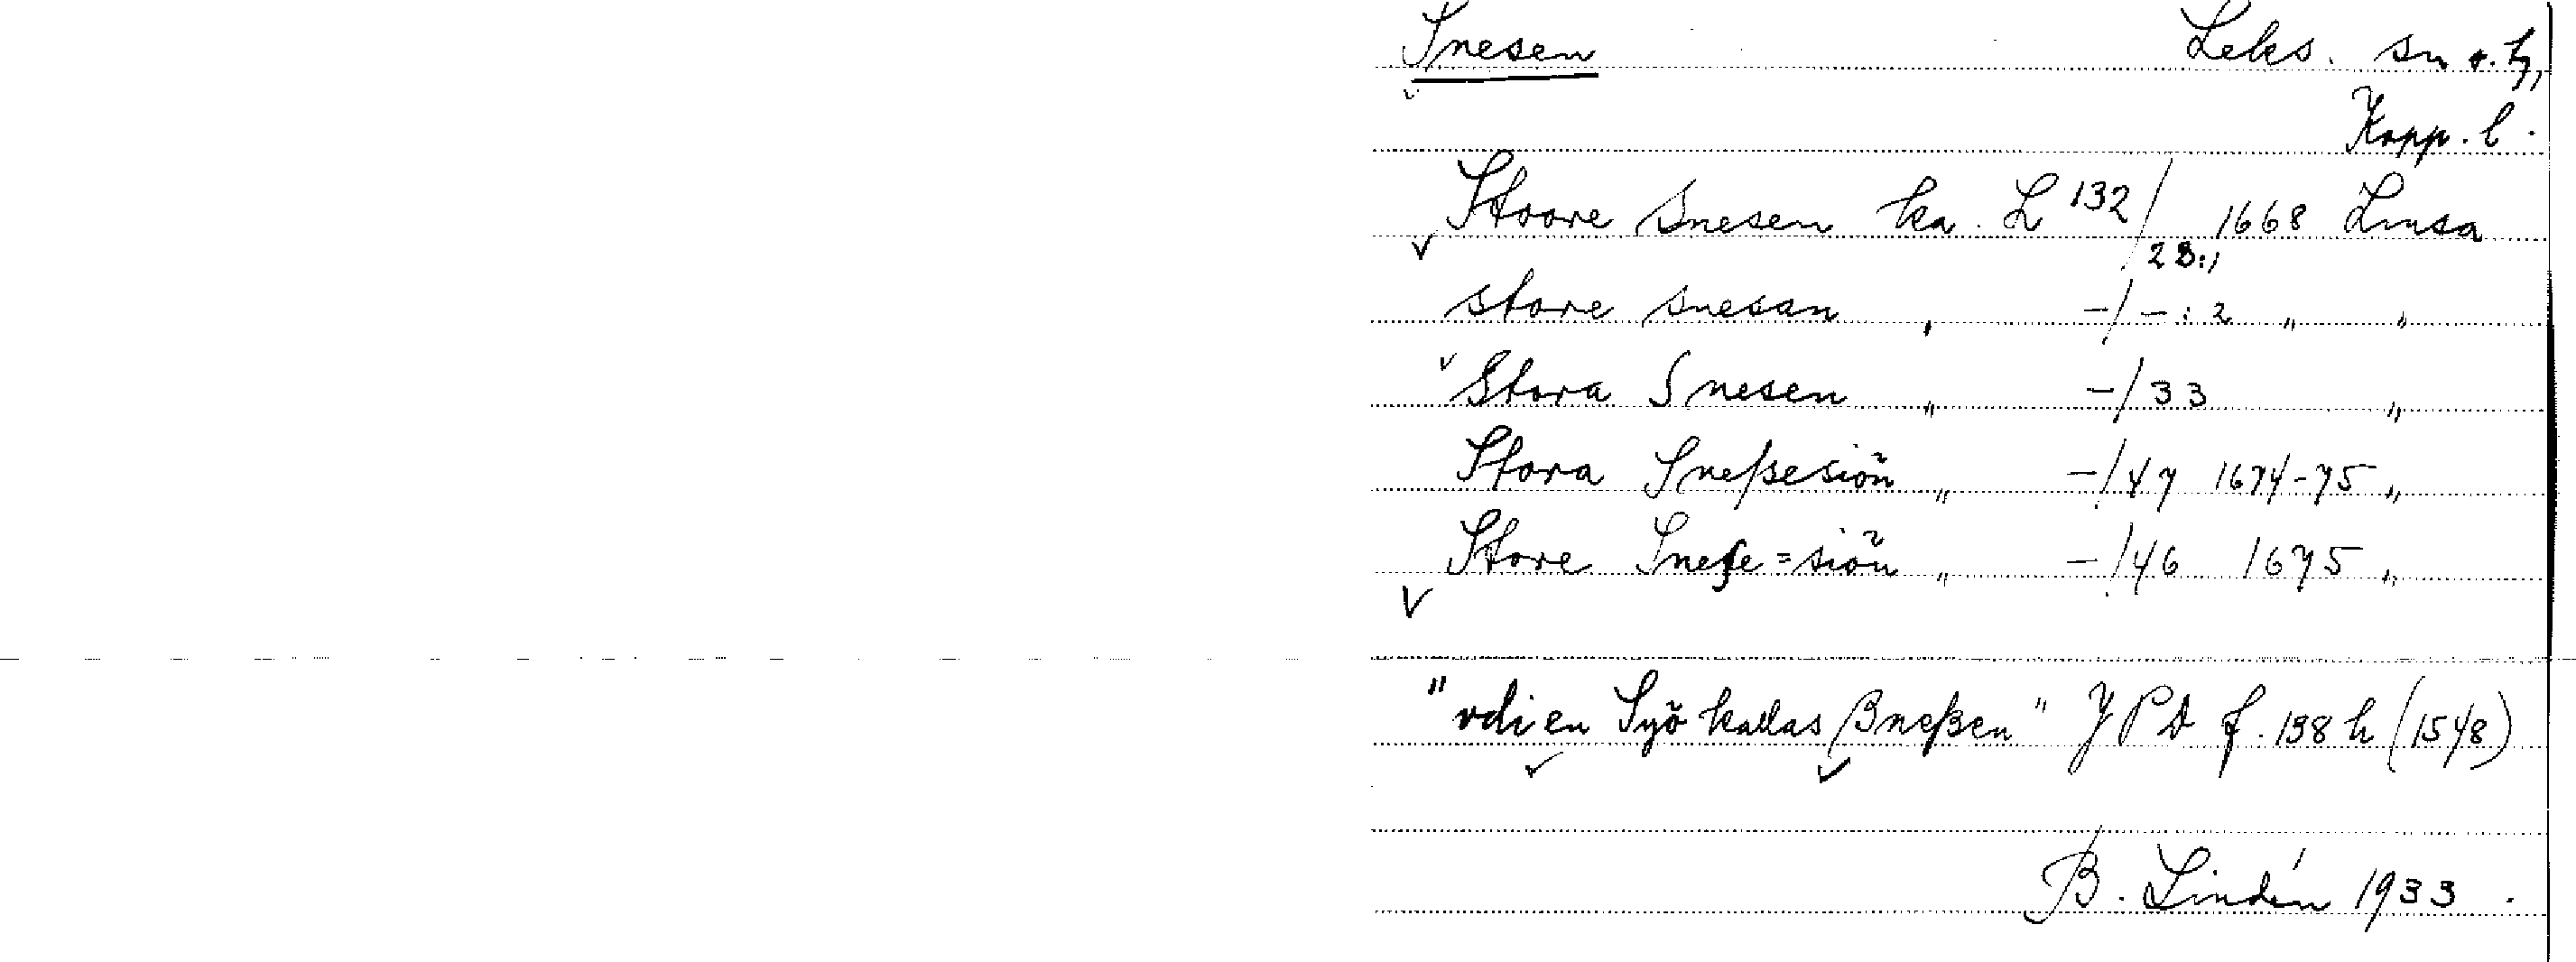 Snesen Leks. sn o. tg,
Kopp. l.
Stoore Snesen ka. L 132/23:1 1668 Lmsa
store snesan " -/-:2 " "
Stora Snesen " -/33 "
Stora Sneßesiön " -/47 1674-75 "
Store Snese=siön " -/46 1675 "
"vdi en Syö kallas Sneßen" JPD f. 138 h (1548)
B. Lindén 1933.